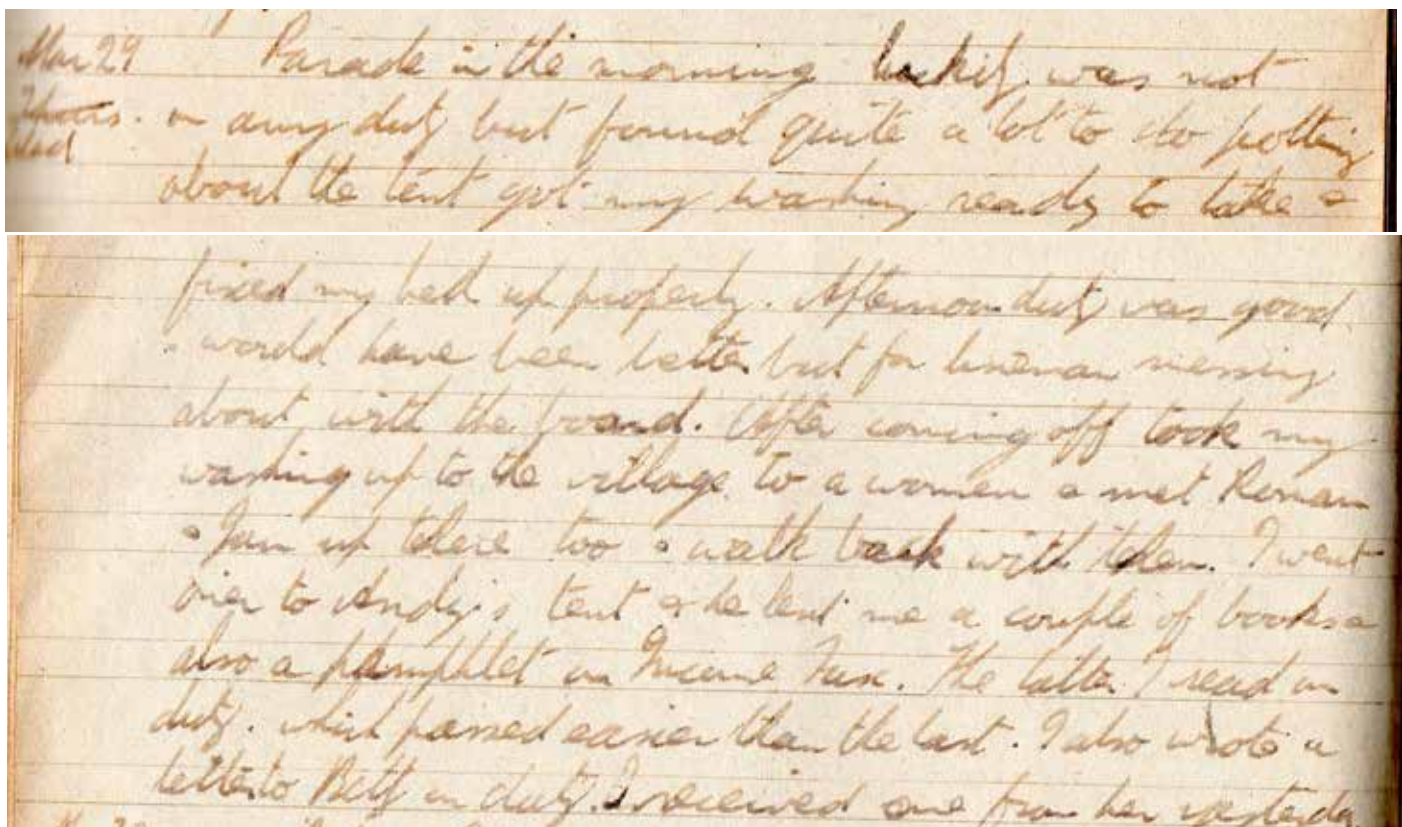 Mar 29 Parade in the morning luckily was not
Thurs. on any duty but found quite a lot to do potting
Wed about the tent got my washing ready to take &
fixed my bed up properly. Afternoon duty was good
& would have been better but for lineman messing
about with the board. After coming off took my
washing up to the village to a women & met Ronan
& Jim up there too & walk back with them. I went
over to Andy's tent & he lent me a couple of books &
also a pamphlet on Income Tax. The latter I read on
duty. which passed easier than the last. I also wrote a
letter to Betty on duty. I received one from her yesterday